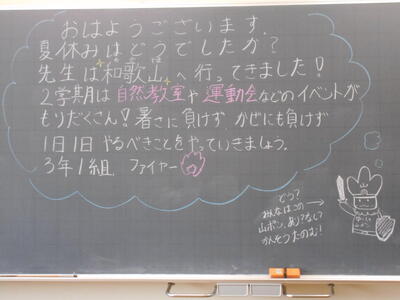 おはようございます.
夏休みはどうでしたか?
先生は和歌山へ行ってきました!
2学期は自然教室や運動会などのイベントが
もりだくさん!暑さに負けず かぜにも負けず
1日1日 やるべきことをやっていきましょう.
3年1組. ファイヤー
どう?
みんなはこの
山ポン、あり?なし?
かんそうたのむ!
山